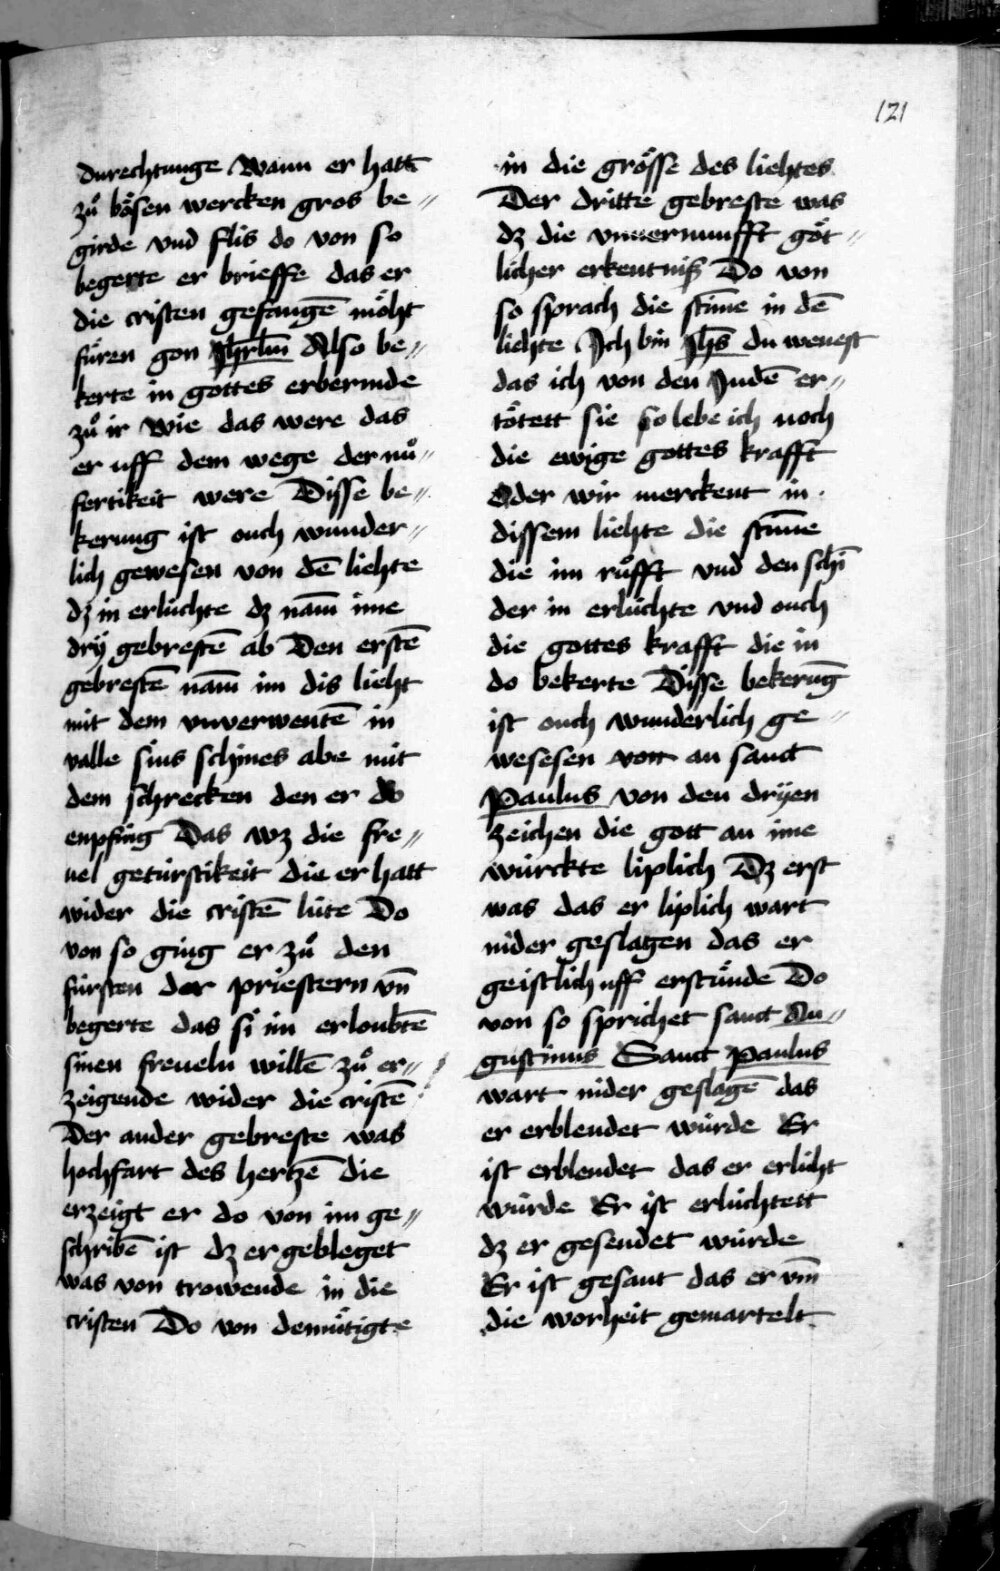 121
durechtunge Wann er hatt
zuͦ boͤsen wercken gros be〃
girde vnd flis do von so
begerte er brieffe das er
die cristen gefangē moͤht
fuͤren gon Jhrlm̄ Also be〃
kerte in gottes erbermde
zuͦ ir Wie das were das
er uff dem wege der nuͦ〃
fertikeit were Disse be〃
kerung ist ouch wunder〃
lich gewesen von dē liehte
dz in erluchte dz nam̄ ime
dry gebrestē ab Den erstē
gebrestē nam̄ im dis lieht
mit dem vnverwentē in
valle sins schines abe mit
dem schrecken den er do
enpfing Das wz die fre〃
uel geturstikeit die er hatt
wider die cristē lute Do
von so ging er zuͦ den
fürsten der priestern vn̄
begerte das si im erloubtē
sinen freueln willē zuͦ er〃
zeigende wider die cristē
Der ander gebreste was
hochfart des hertzē die
erzeigt er do von im ge〃
schribē ist dz er gebleget
was von trowende in die
cristen Do von demuͤtigte
in die groͤsse des liehtes
Der dritte gebreste was
dz die vnuernunfft goͤt〃
licher erkentniß Do von
so sprach die stim̄e in dē
liehte Jch bin Jhs̄ du wenest
das ich von den Judē er〃
toͤtett sie so lebe ich noch
die ewige gottes krafft
Oder wir merckent in
dissem liehte die stim̄e
die im ruͦfft vnd den schī
der in erluchte vnd ouch
die gottes krafft die in
do bekerte Disse bekerūg
ist ouch wunderlich ge〃
wesesen von an sanct
Paulus von den dryen
zeichen die gott an ime
würckte liplich Dz erst
was das er liplich wart
nider geslagen das er
geistlich uff erstuͤnde Do
von so sprichet sanct Au〃
gustinus Sanct Paulus
wart nider geslagē das
er erblendet würde Er
ist erblendet das er erlicht
würde Er ist erluchtett
dz er gesendet würde
Er ist gesant das er vm̄
die worheit gemartelt